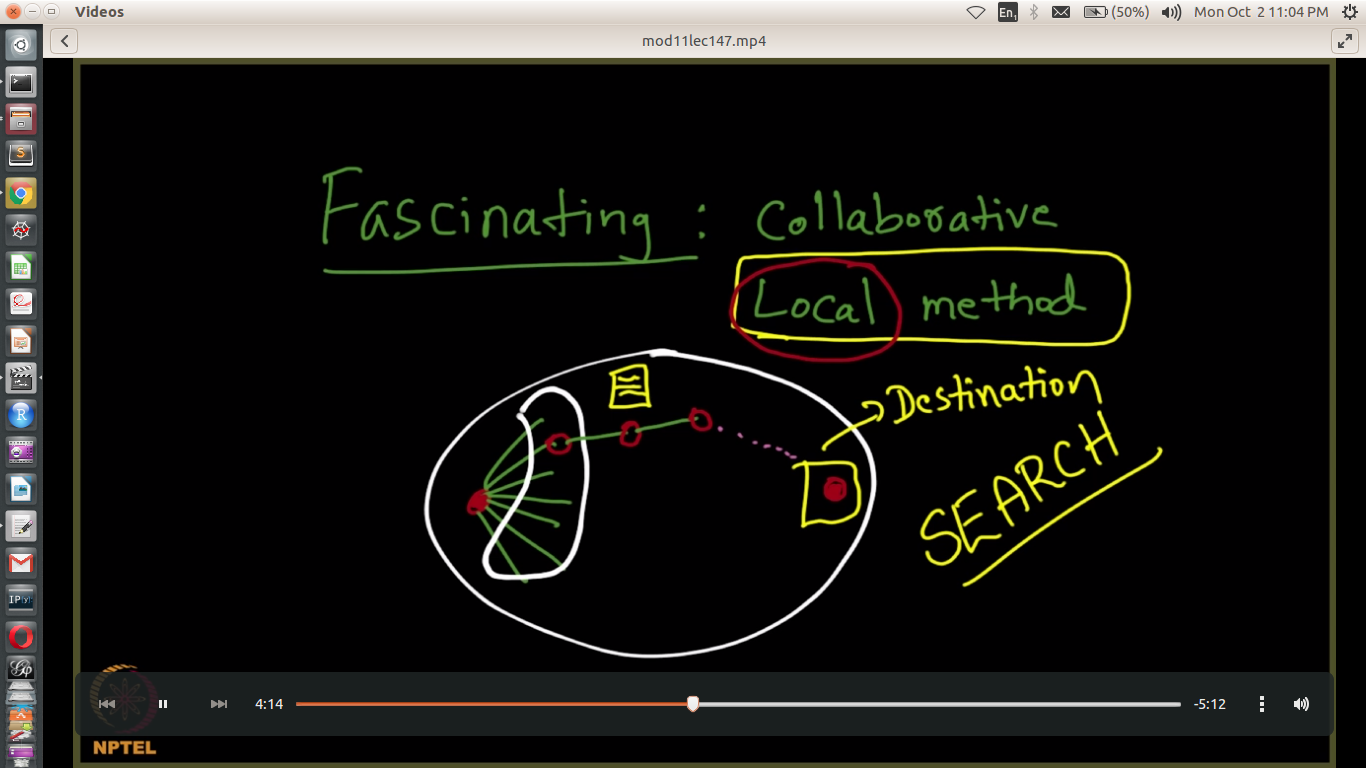 Videos
En1
(50%)
Mon Oct 2 11:04 PM
mod11lec147.mp4
Fascinating : Collaborative
Local method
Destination
SEARCH
4:14
-5:12
NPTEL